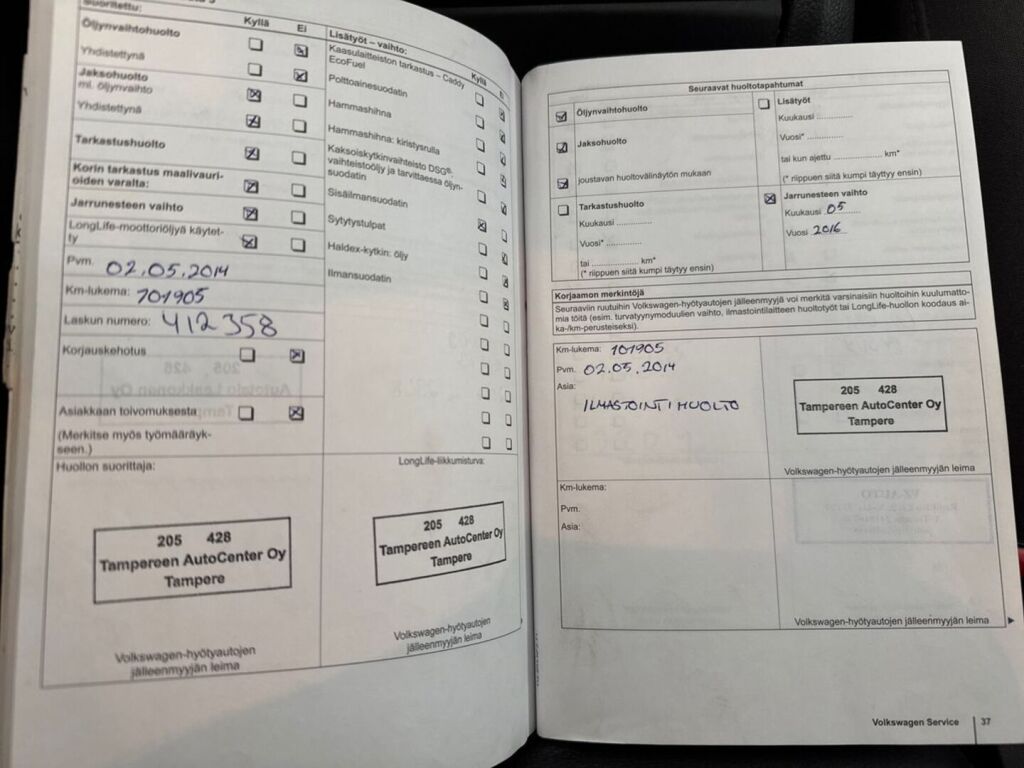 Suoritettu:
Kyllä Ei
Öljynvaihtohuolto
Yhdistettynä
Jaksohuolto
ml. öljynvaihto
Yhdistettynä
Tarkastushuolto
Korin tarkastus maalivauri-
oiden varalta:
Jarrunesteen vaihto
LongLife-moottoriöljyä käytet-
ty
Pvm. 02.05.2014
Km-lukema: 101905
Laskun numero: 412358
Korjauskehotus
Asiakkaan toivomuksesta
(Merkitse myös työmääräyk-
seen.)
Huollon suorittaja:
205 428
Tampereen AutoCenter Oy
Tampere
Volkswagen-hyötyautojen
jälleenmyyjän leima
Lisätyöt – vaihto:
Kyllä
Kaasulaitteiston tarkastus – Caddy
EcoFuel
Polttoainesuodatin
Hammashihna
Hammashihna: kiristysrulla
Kaksoiskytkinvaihteisto DSG®:
vaihteistoöljy ja tarvittaessa öljyn-
suodatin
Sisäilmansuodatin
Sytytystulpat
Haldex-kytkin: öljy
Ilmansuodatin
LongLife-liikkumisturva:
205 428
Tampereen AutoCenter Oy
Tampere
Volkswagen-hyötyautojen
jälleenmyyjän leima
Seuraavat huoltotapahtumat
Öljynvaihtohuolto
Jaksohuolto
joustavan huoltovälinäytön mukaan
Tarkastushuolto
Kuukausi ...........
Vuosi* .............
tai ................... km*
(* riippuen siitä kumpi täytyy ensin)
Lisätyöt
Kuukausi .............
Vuosi* .............
tai kun ajettu ................. km*
(* riippuen siitä kumpi täyttyy ensin)
Jarrunesteen vaihto
Kuukausi 05
Vuosi 2016
Korjaamon merkintöjä
Seuraaviin ruutuihin Volkswagen-hyötyautojen jälleenmyyjä voi merkitä varsinaisiin huoltoihin kuulumatto-
mia töitä (esim. turvatyynymoduulien vaihto, ilmastointilaitteen huoltotyöt tai LongLife-huollon koodaus ai-
ka-/km-perusteiseksi).
Km-lukema: 101905
Pvm. 02.05.2014
Asia:
ILMASTOINTIHUOLTO
205 428
Tampereen AutoCenter Oy
Tampere
Volkswagen-hyötyautojen jälleenmyyjän leima
Km-lukema:
Pvm.
Asia:
Volkswagen-hyötyautojen jälleenmyyjän leima
Volkswagen Service 37